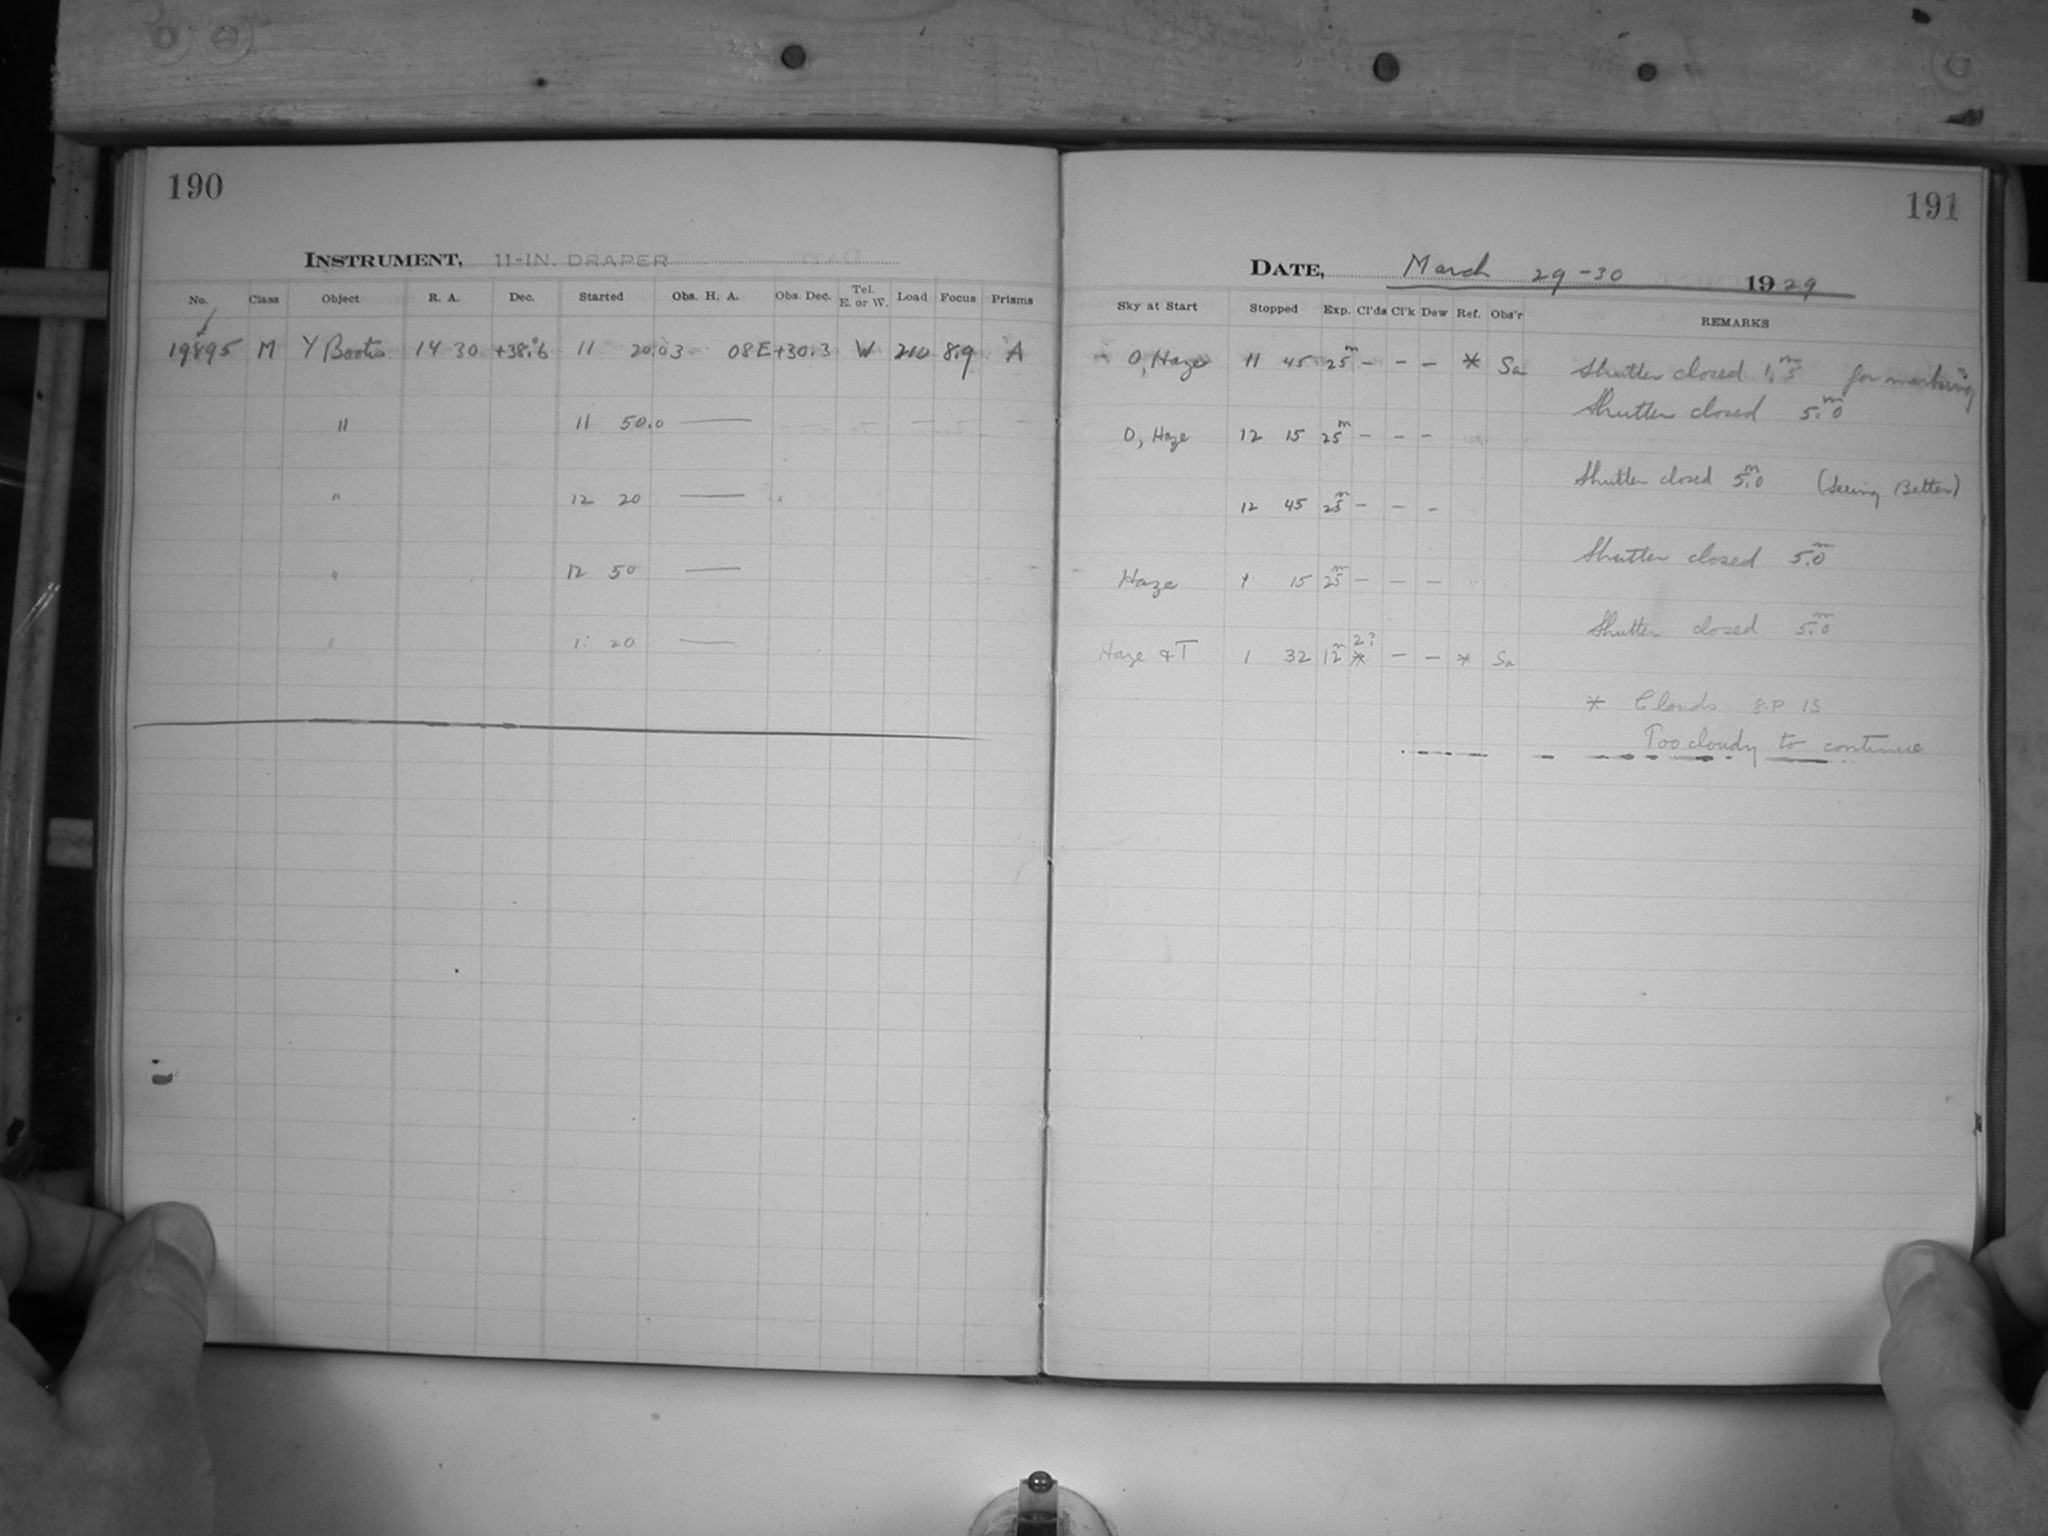 190
INSTRUMENT, 11-IN. DRAPER
No. Class Object R. A. Dec. Started Obs. H. A. Obs. Dec. Tel. E. or W. Load Focus Prisms
19895 M γ Bootis 14 30 +38.°6 11 20.0 3 08E +30.3 W 210 8.9 A
" 11 50.0 —
" 12 20 —
" 12 50 —
" 1: 20 —
191
DATE, March 29-30 1929
Sky at Start Stopped Exp. Cl'ds Cl'k Dew Ref. Obs'r REMARKS
0, Haze 11 45 25m - - - * Sa Shutter closed 1.m5 for marking
Shutter closed 5.m0
0, Haze 12 15 25m - - -
Shutter closed 5.m0 (Seeing Better)
12 45 25m - - -
Shutter closed 5.m0
Haze 1 15 25m - - -
Shutter closed 5.m0
Haze & T 1 32 12m 2? * - - * Sa
* Clouds S.P 15
Too cloudy to continue